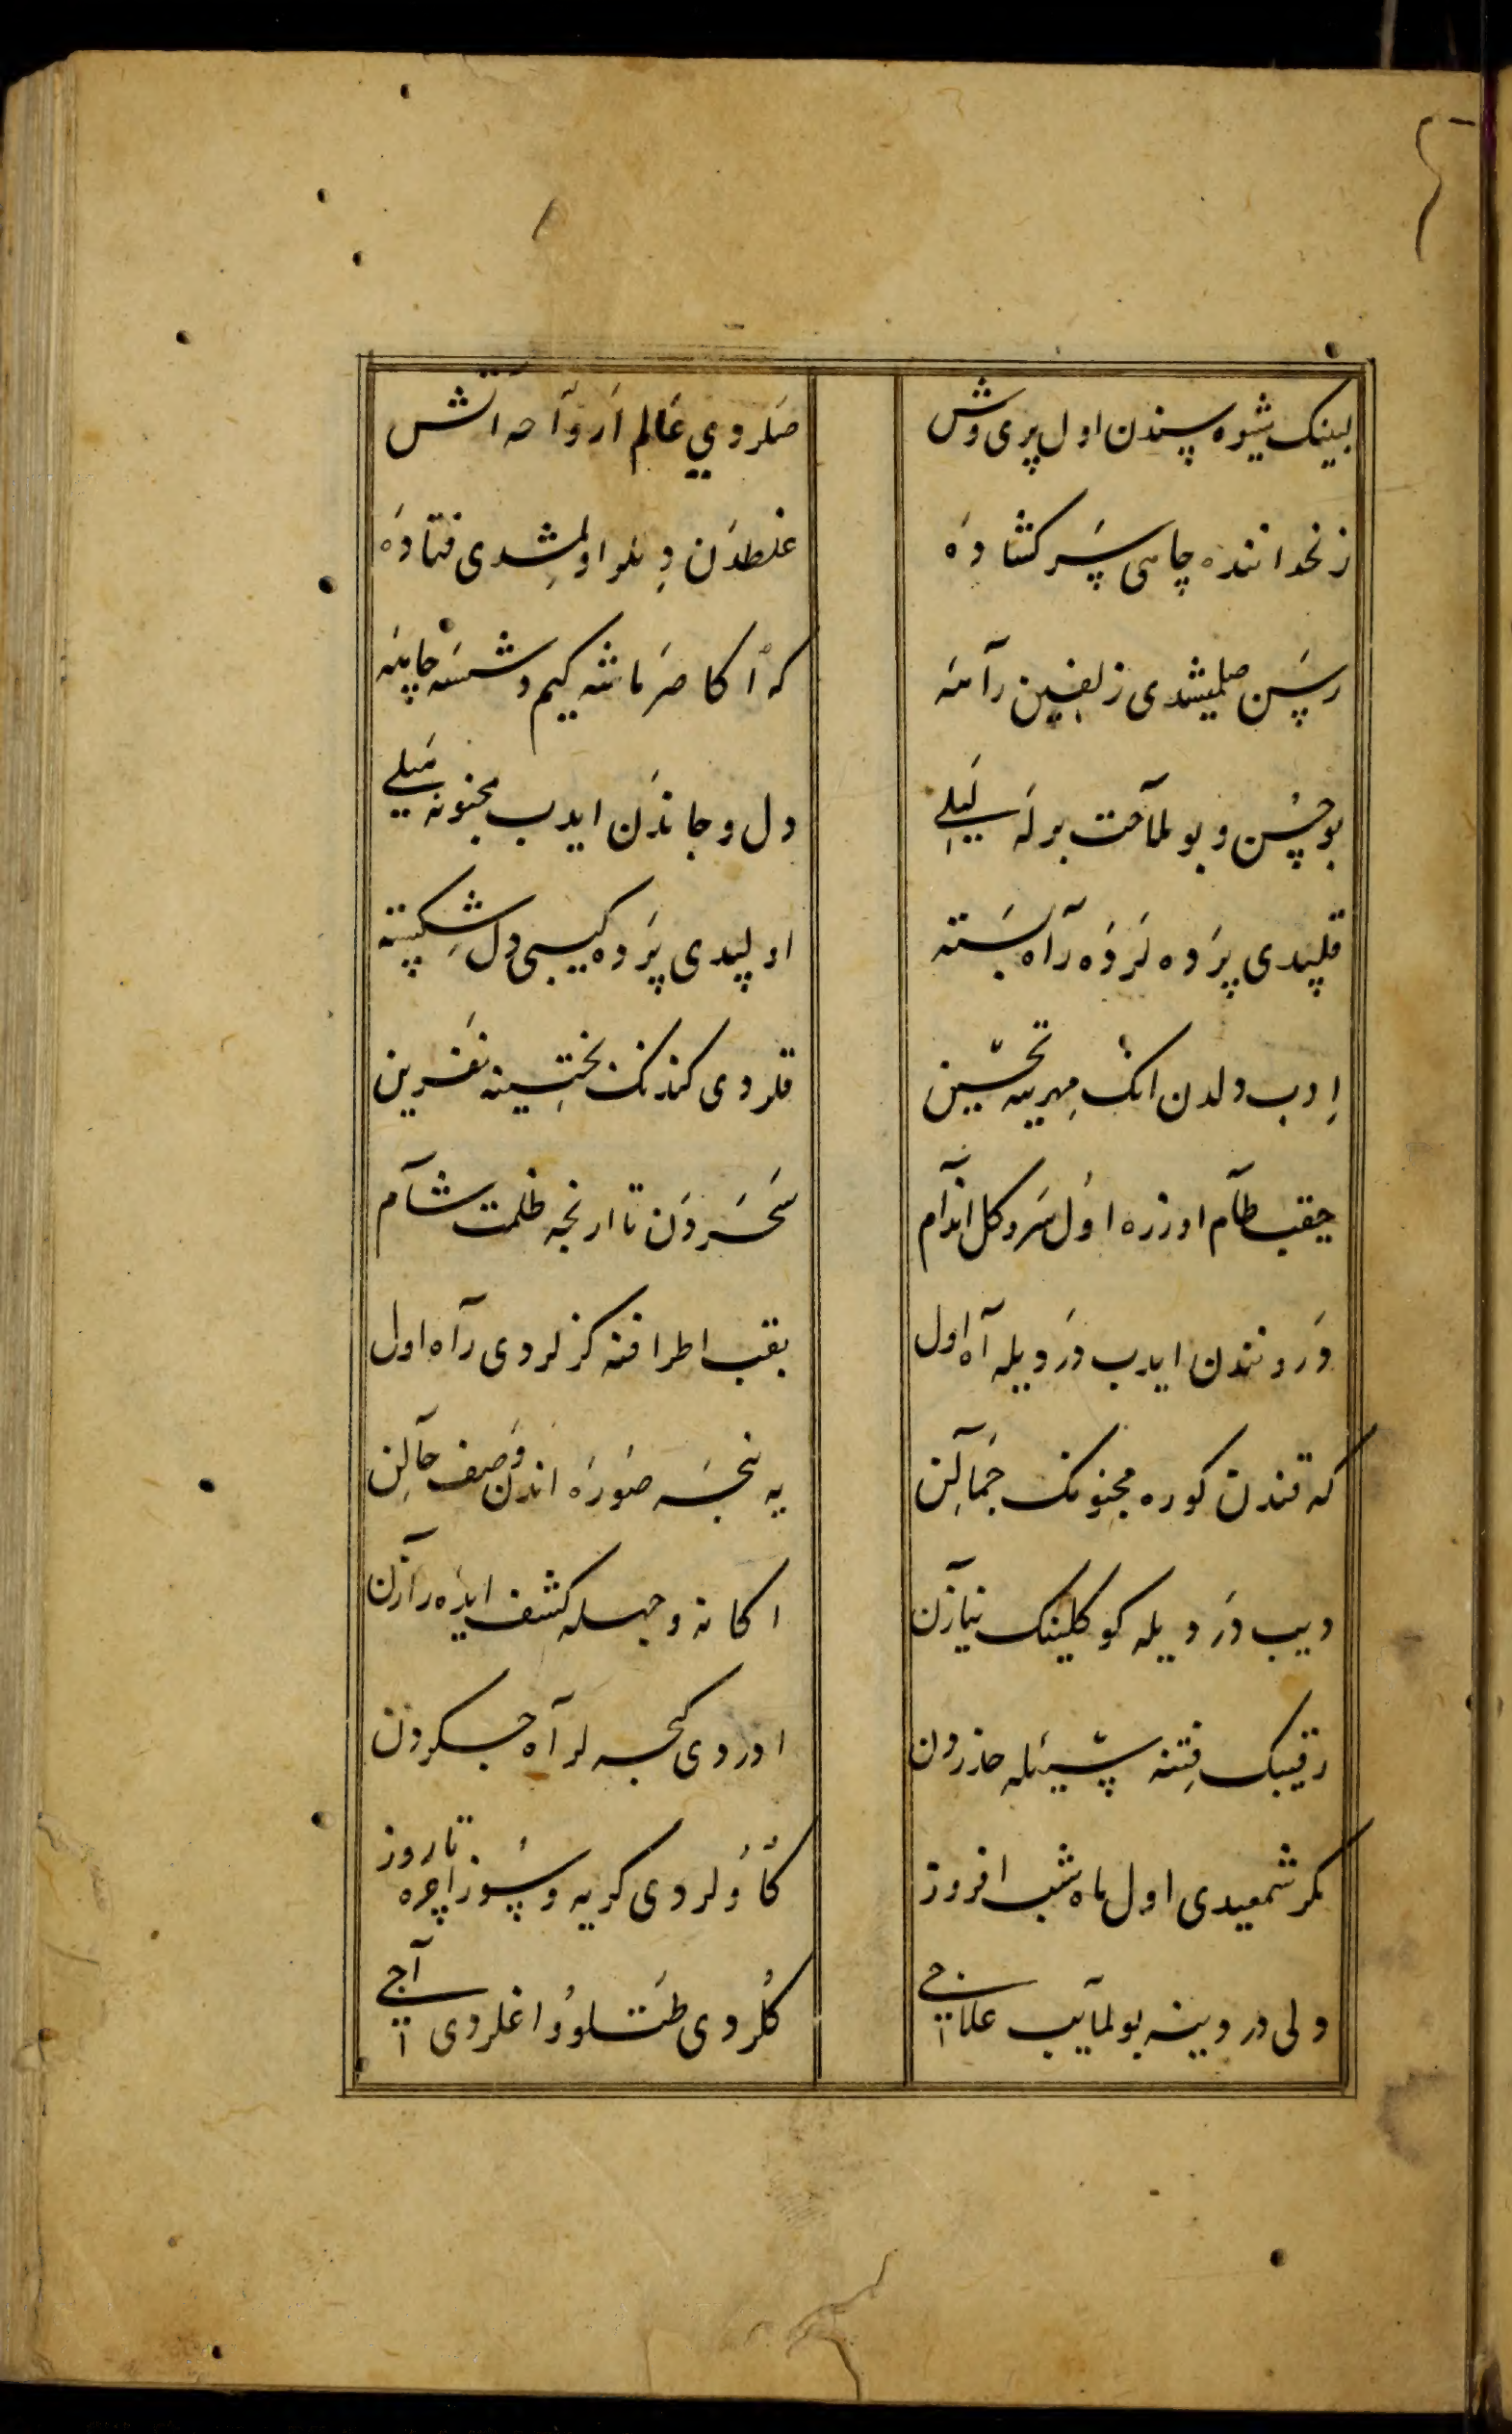 لبینک شیوه سندن اول پری وش
صلردی عالم ارواحه آتش
زنخداننده چاهی سر کشاده
غلطدن دللر اولمشدی فتاده
رسن صلمیشدی زلفین راهنه
که اکا صرماشه کیم دشسه چاهنه
بو حسن و بو ملاحت برله لیلی
دل و جاندن ایدب مجنونه میلی
قلیدی پرده لرده راه بسته
اولیدی پرده کیبی دل شکسته
ادب دلدن انک مهرینه تحسین
قلردی کندنک بختینه نفرین
چقب طام اوزره اول سرو کل اندام
سحردن تا ارنجه ظلمت شام
درونندن ایدب دردیله آه اول
بقب اطرافنه کزلردی راه اول
که قندن کوره مجنونک جمالن
یه نیجه صوره اندن وصف حالن
دیب دردیله کوکلینک نیازن
اکا نه وجهله کشف ایده رازن
رقیبک فتنه سیله حذردن
اوردی کیجه لر آه جکردن
مکر شمعیدی اول ماه شب افروز
کاولردی کریه و سوز اچره تا روز
ولی دردینه بولمایب علاجی
کلردی طتلو و اغلردی آجی